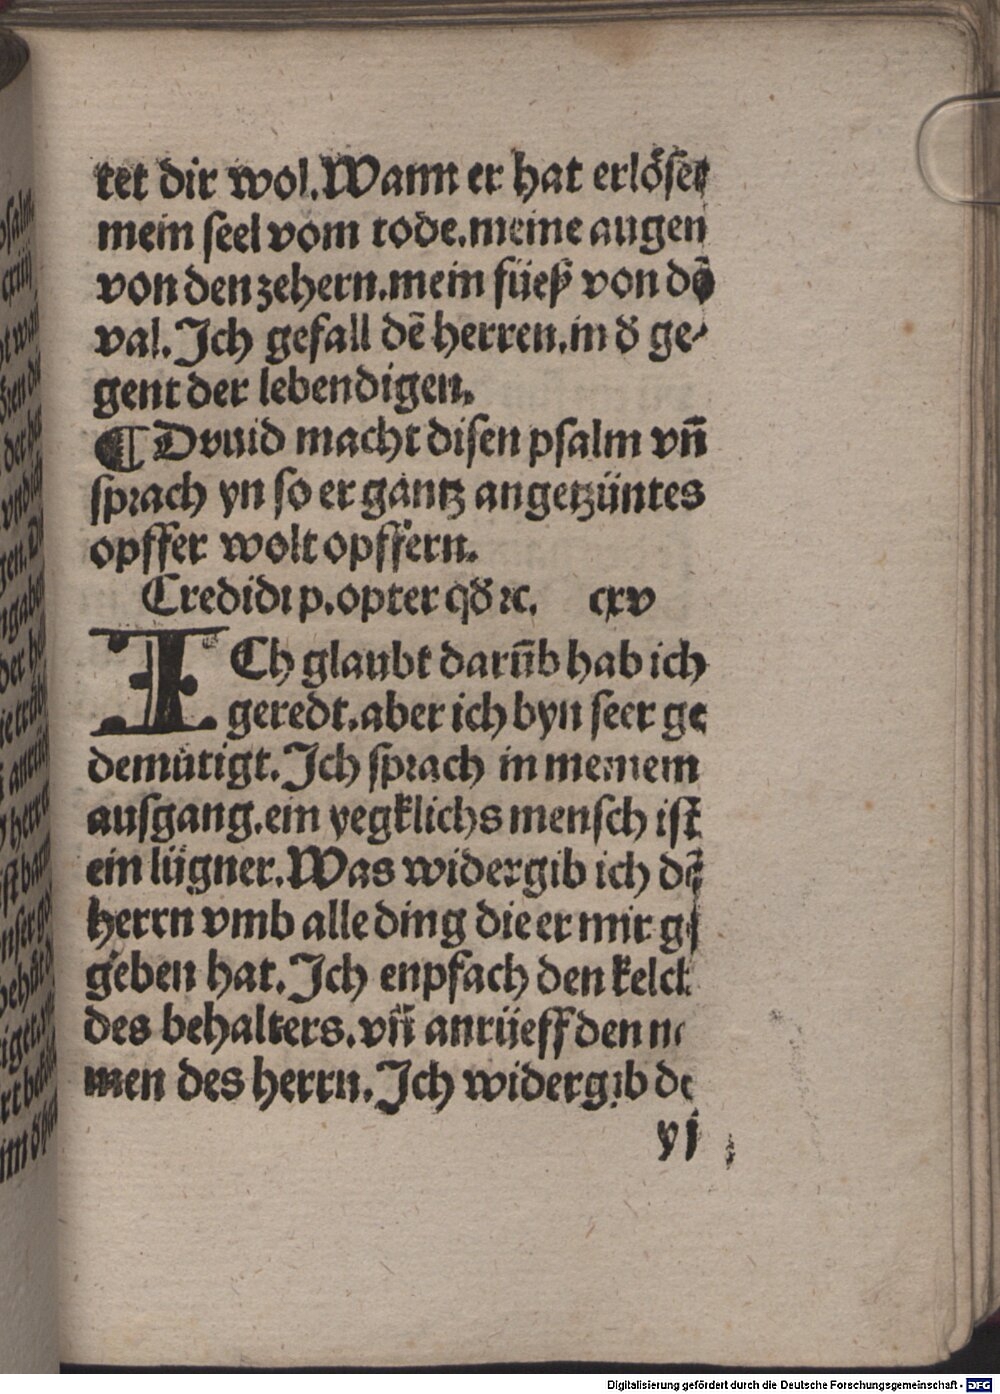 tet dir wol.Wann er hat erlöset
mein seel vom tode.meine augen
von den zehern.mein füeß von dē
val.Ich gefall dē herren.in d̕ ge⸗
gent der lebendigen.
¶ Dauid macht disen psalm vn̄
sprach yn so er gantz angetzüntes
opffer wolt opffern.
Credidi p.opter qd̕ ⁊c. cxv
ICh glaubt darūb hab ich
geredt.aber ich byn seer ge
demütigt.Ich sprach in meinem
ausgang.ein yegklichs mensch ist
ein lügner.Was widergib ich dē
herrn vmb alle ding die er mir ge
geben hat.Ich enpfach den kelch
des behalters.vn̄ anrüeff den na
men des herrn.Ich widergib de
y j
Digitalisierung gefördert durch die Deutsche Forschungsgemeinschaft - DFG